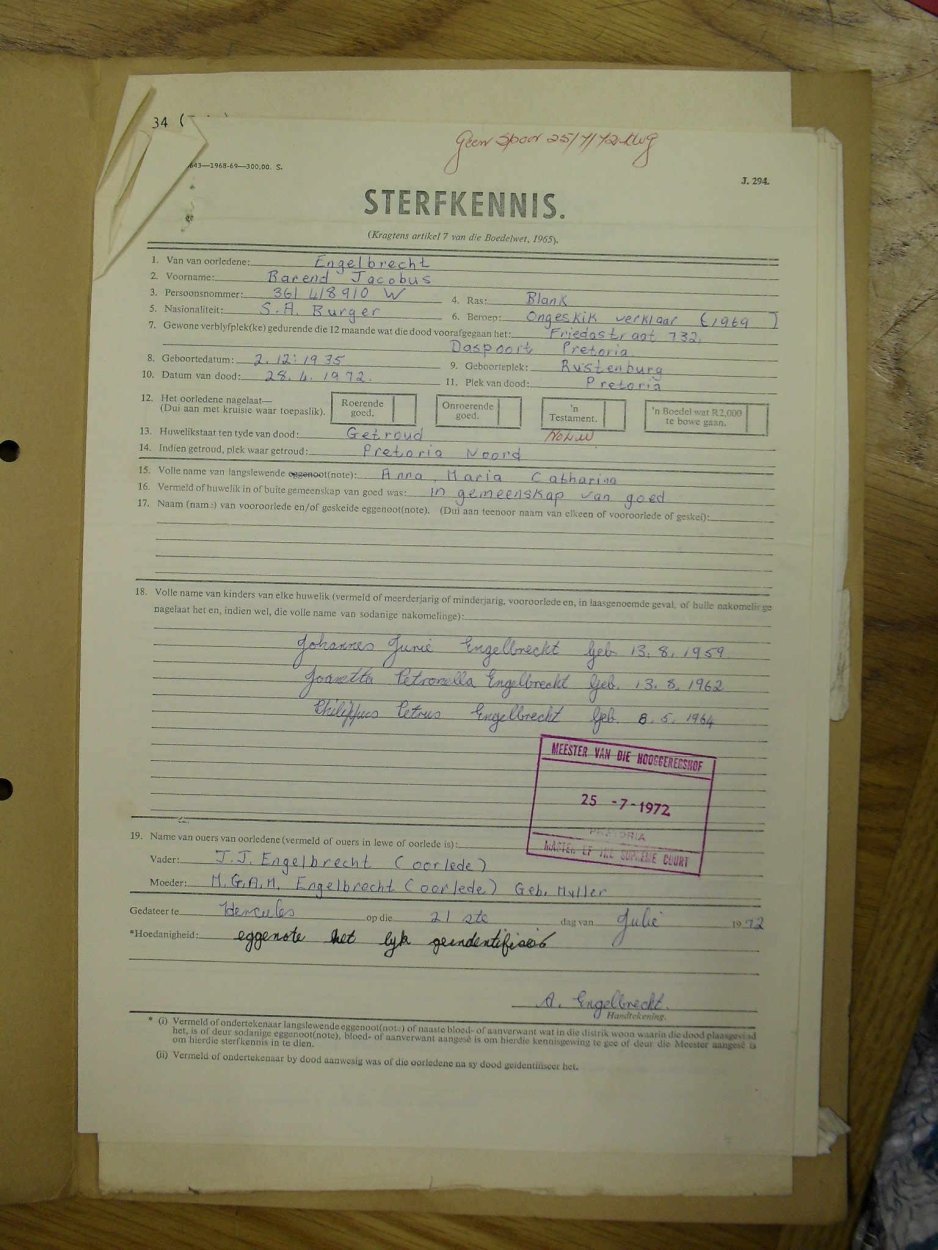 34 (
Geen Spoor 25/7/72
643—1968-69—300,00. S.
J. 294.
STERFKENNIS.
(Kragtens artikel 7 van die Boedelwet, 1965).
1. Van van oorledene: Engelbrecht
2. Voorname: Barend Jacobus
3. Persoonsnommer: 361 418910 W 4. Ras: Blank
5. Nasionaliteit: S.A. Burger 6. Beroep: Ongeskik verklaar (1969)
7. Gewone verblyfplek(ke) gedurende die 12 maande wat die dood voorafgegaan het: Friedastraat 732,
Daspoort Pretoria
8. Geboortedatum: 2.12.1935 9. Geboorteplek: Rustenburg
10. Datum van dood: 28.4.1972. 11. Plek van dood: Pretoria
12. Het oorledene nagelaat—
(Dui aan met kruisie waar toepaslik).
Roerende goed.
Onroerende goed.
'n Testament.
'n Boedel wat R2,000 te bowe gaan.
13. Huwelikstaat ten tyde van dood: Getroud
14. Indien getroud, plek waar getroud: Pretoria Noord
15. Volle name van langslewende eggenoot(note): Anna Maria Catharina
16. Vermeld of huwelik in of buite gemeenskap van goed was: in gemeenskap van goed
17. Naam (name) van vooroorlede en/of geskeide eggenoot(note). (Dui aan teenoor naam van elkeen of vooroorlede of geskei):
18. Volle name van kinders van elke huwelik (vermeld of meerderjarig of minderjarig, vooroorlede en, in laasgenoemde geval, of hulle nakomelinge
nagelaat het en, indien wel, die volle name van sodanige nakomelinge):
Johannes Jurie Engelbrecht Geb 13.8.1959
Joanetta Petronella Engelbrecht Geb. 13.8.1962
Philippus Petrus Engelbrecht Geb. 8.5.1964
MEESTER VAN DIE HOOGGEREGSHOF
25 -7-1972
PRETORIA
MASTER OF THE SUPREME COURT
19. Name van ouers van oorledene (vermeld of ouers in lewe of oorlede is):
Vader: J.J. Engelbrecht (oorlede)
Moeder: M.G.A.M. Engelbrecht (oorlede) Geb. Muller
Gedateer te Hercules op die 21 ste dag van Julie 1972
*Hoedanigheid: eggenote het lyk
A. Engelbrecht.
Handtekening.
* (i) Vermeld of ondertekenaar langslewende eggenoot(note) of naaste bloed- of aanverwant wat in die distrik woon waarin die dood plaasgevind
het, is of deur sodanige eggenoot(note), bloed- of aanverwant aangesê is om hierdie kennisgewing te gee of deur die Meester aangesê is
om hierdie sterfkennis in te dien.
(ii) Vermeld of ondertekenaar by dood aanwesig was of die oorledene na sy dood geïdentifiseer het.